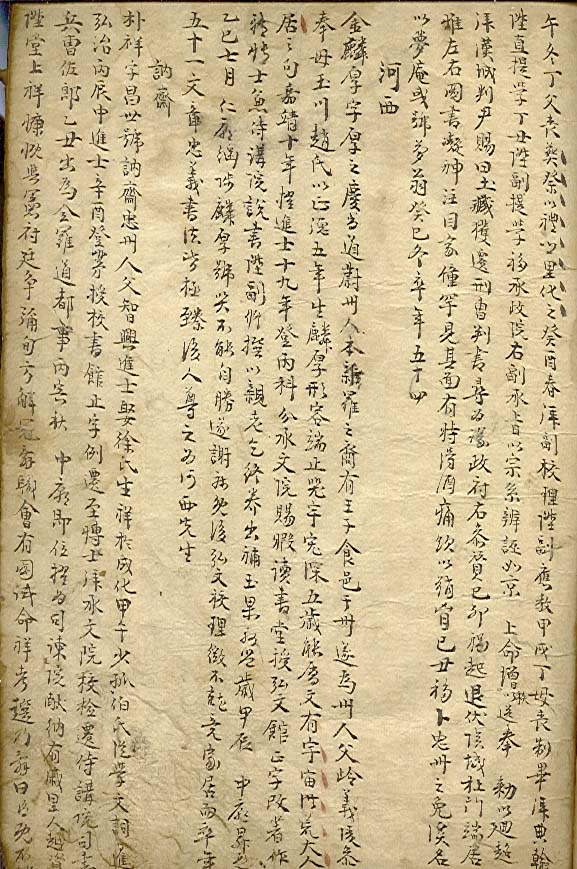 午冬丁父喪葬祭以禮以里化之癸酉春拜副校理陞副應敎甲戌丁母喪制畢拜典翰
陞直提學丁丑陞副提學移承政院右副承旨以宗系辨誣如京 上命增秩送奉 勅以廻超
拜漢城判尹賜田土臧獲還刑曹判書尋爲議政府右參贊己卯禍起退伏陰城杜門端居
惟左右圖書凝神注目家僮罕見其面有時得酒痛飮以自己丑移卜忠州之兎溪名
以夢庵或號夢翁癸巳冬卒年五十四
河西
金麟厚字厚之慶尙道蔚州人本新羅之裔有王子食邑于州遂爲州人父齡義陵參
奉母玉川趙氏以正德五年生麟厚形容端正器宇宏深五歲能屬文有宇宙洪荒大人
居之句嘉靖十年擢進士十九年登丙科分承文院賜暇讀書堂授弘文館正字改著作
轉博士兼侍講院說書陞副修撰以親老乞終養出補玉果縣是歲甲辰 中廟昇遐
乙巳七月 仁廟繼陟麟厚號哭不能自勝遂謝病免後弘文校理徵不就竟家居而卒年
五十一文章忠義書法皆極臻後人尊之爲河西先生
訥齋
朴祥字昌世號訥齋忠州人父智興進士娶徐氏生祥於成化甲午少孤伯氏從學文詞進
弘治丙辰中進士辛酉登第授校書館正字例遷至博士拜承文院校檢遷侍講院司書
兵曹佐郞乙丑出爲全羅道都事丙寅秋 中廟卽位招爲司諫院獻納有戚里人超資
陞堂上祥慷慨與憲府廷爭彌旬方解冤會有國試命祥考選